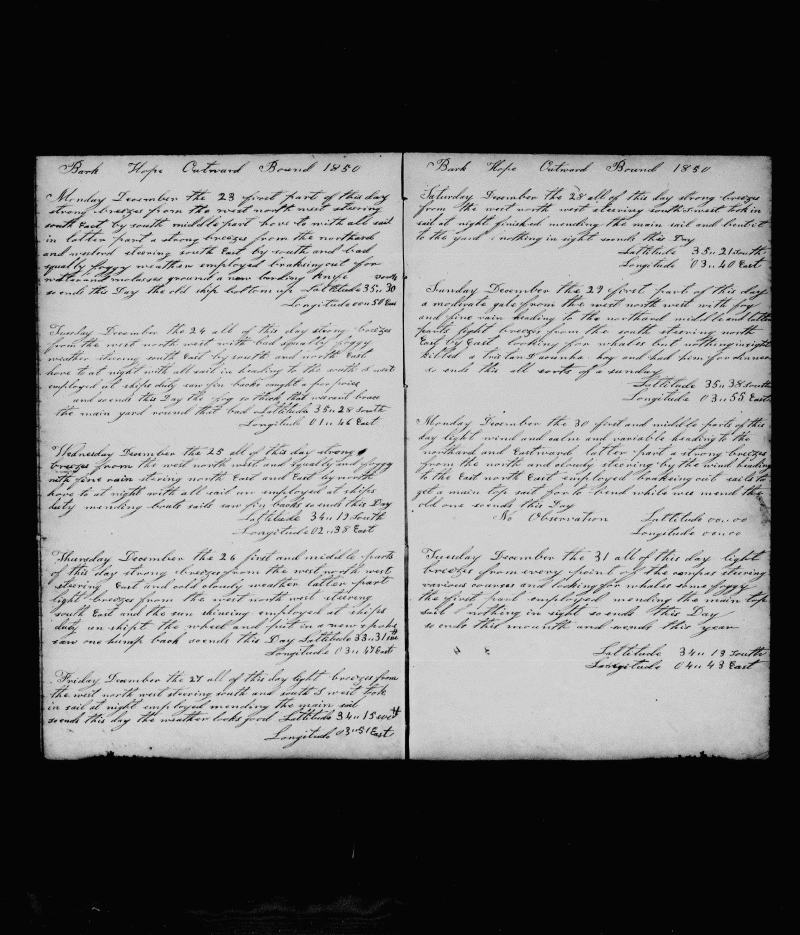 Bark Hope Outward Bound 1850
Monday December the 23 first part of this day
strong breezes from the west north west steering
south East by south middle part hove to with all sail
in latter part a strong breezes from the northard
and westerd steering south East by south and bad
squally foggy weather employed braking out for
water and molasses ground a new boarding knife
so ends this Day the old ship bottom up Lattitude 35,, 30 south
Longitude 00,, 50 East
Tuesday December the 24 all of this day strong breezes
from the west north west with bad squally foggy
weather stearing south East by south and north East
hove to at night with all sail in heading to the south S west
employed at ships duty saw fin backs caught a few
and so ends this Day the fog so thick that we cant brace
the main yard round that bad Lattitude 35,, 28 South
Longitude 01,, 46 East
Wednesday December the 25 all of this day strong
breezes from the west north west and squally and foggy
with fine rain stering north East and East by north
hove to at night with all sail in employed at ships
duty mending boats sails saw fin backs so ends this Day
Lattitude 34,, 13 South
Longitude 02,, 38 East
Thursday December the 26 first and middle parts
of this day strong breezes from the west north west
steering East and cold cloudy weather latter part
light breezes from the west north west stering
south East and the sun shineing employed at ships
duty un shipt the wheel and put in a new spoke
saw one hump back so ends this Day Lattitude 33,, 31 south
Longitude 03,, 47 East
Friday December the 27 all of this day light breezes from
the west north west steering south and south S west tok
in sail at night employed mending the main sail
so ends this day the weather looks good Lattitude 34,, 15
Longitude 03,, 51 East
Bark Hope Outward Bound 1850
Saturday December the 28 all of this day strong breezes
from the west north west steering south S west tok in
sail at night finished mending the main sail and bent it
to the yard nothing in sight so ends this Day
Lattitude 35,, 21 South
Longitude 03,, 40 East
Sunday December the 29 first part of this day
a moderate gale from the west north west with fog
and fine rain heading to the northard middle and latter
parts light breezes from the south steering north
East by East looking for whales but nothing in sight
killed a Tristan Dacunha hog and had him for dinner
so ends this all sorts of a sunday
Lattitude 35,, 38 South
Longitude 03,, 55 East
Monday December the 30 first and middle parts of this
day light wind and calm and variable heading to the
northard and Eastward latter part a strong breezes
from the north and cloudy steering by the wind heading
to the East north East employed brakeing out sails to
get a main top sail for to bend while wee mend the
old one so ends this Day
No Observation Lattitude 00,, 00
Longitude 00,, 00
Tuesday December the 31 all of this day light
breezes from every point of the compas steering
various courses and looking for whales some foggy
the first part employed mending the main top
sail nothing in sight so ends this Day
so ends this mounth and so ends this year
Lattitude 34,, 13 South
Longitude 04,, 43 East